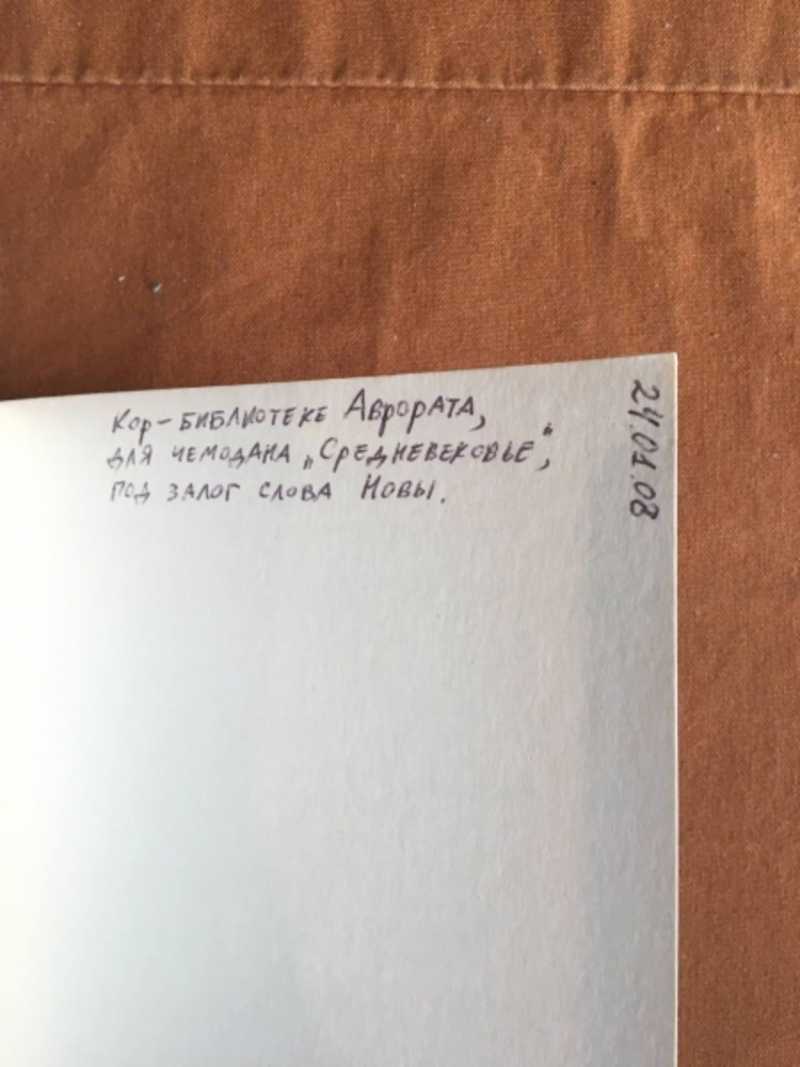 Кор-библиотеке Аврората,
для чемодана „Средневековье“,
под залог слова Новы.
24.01.08